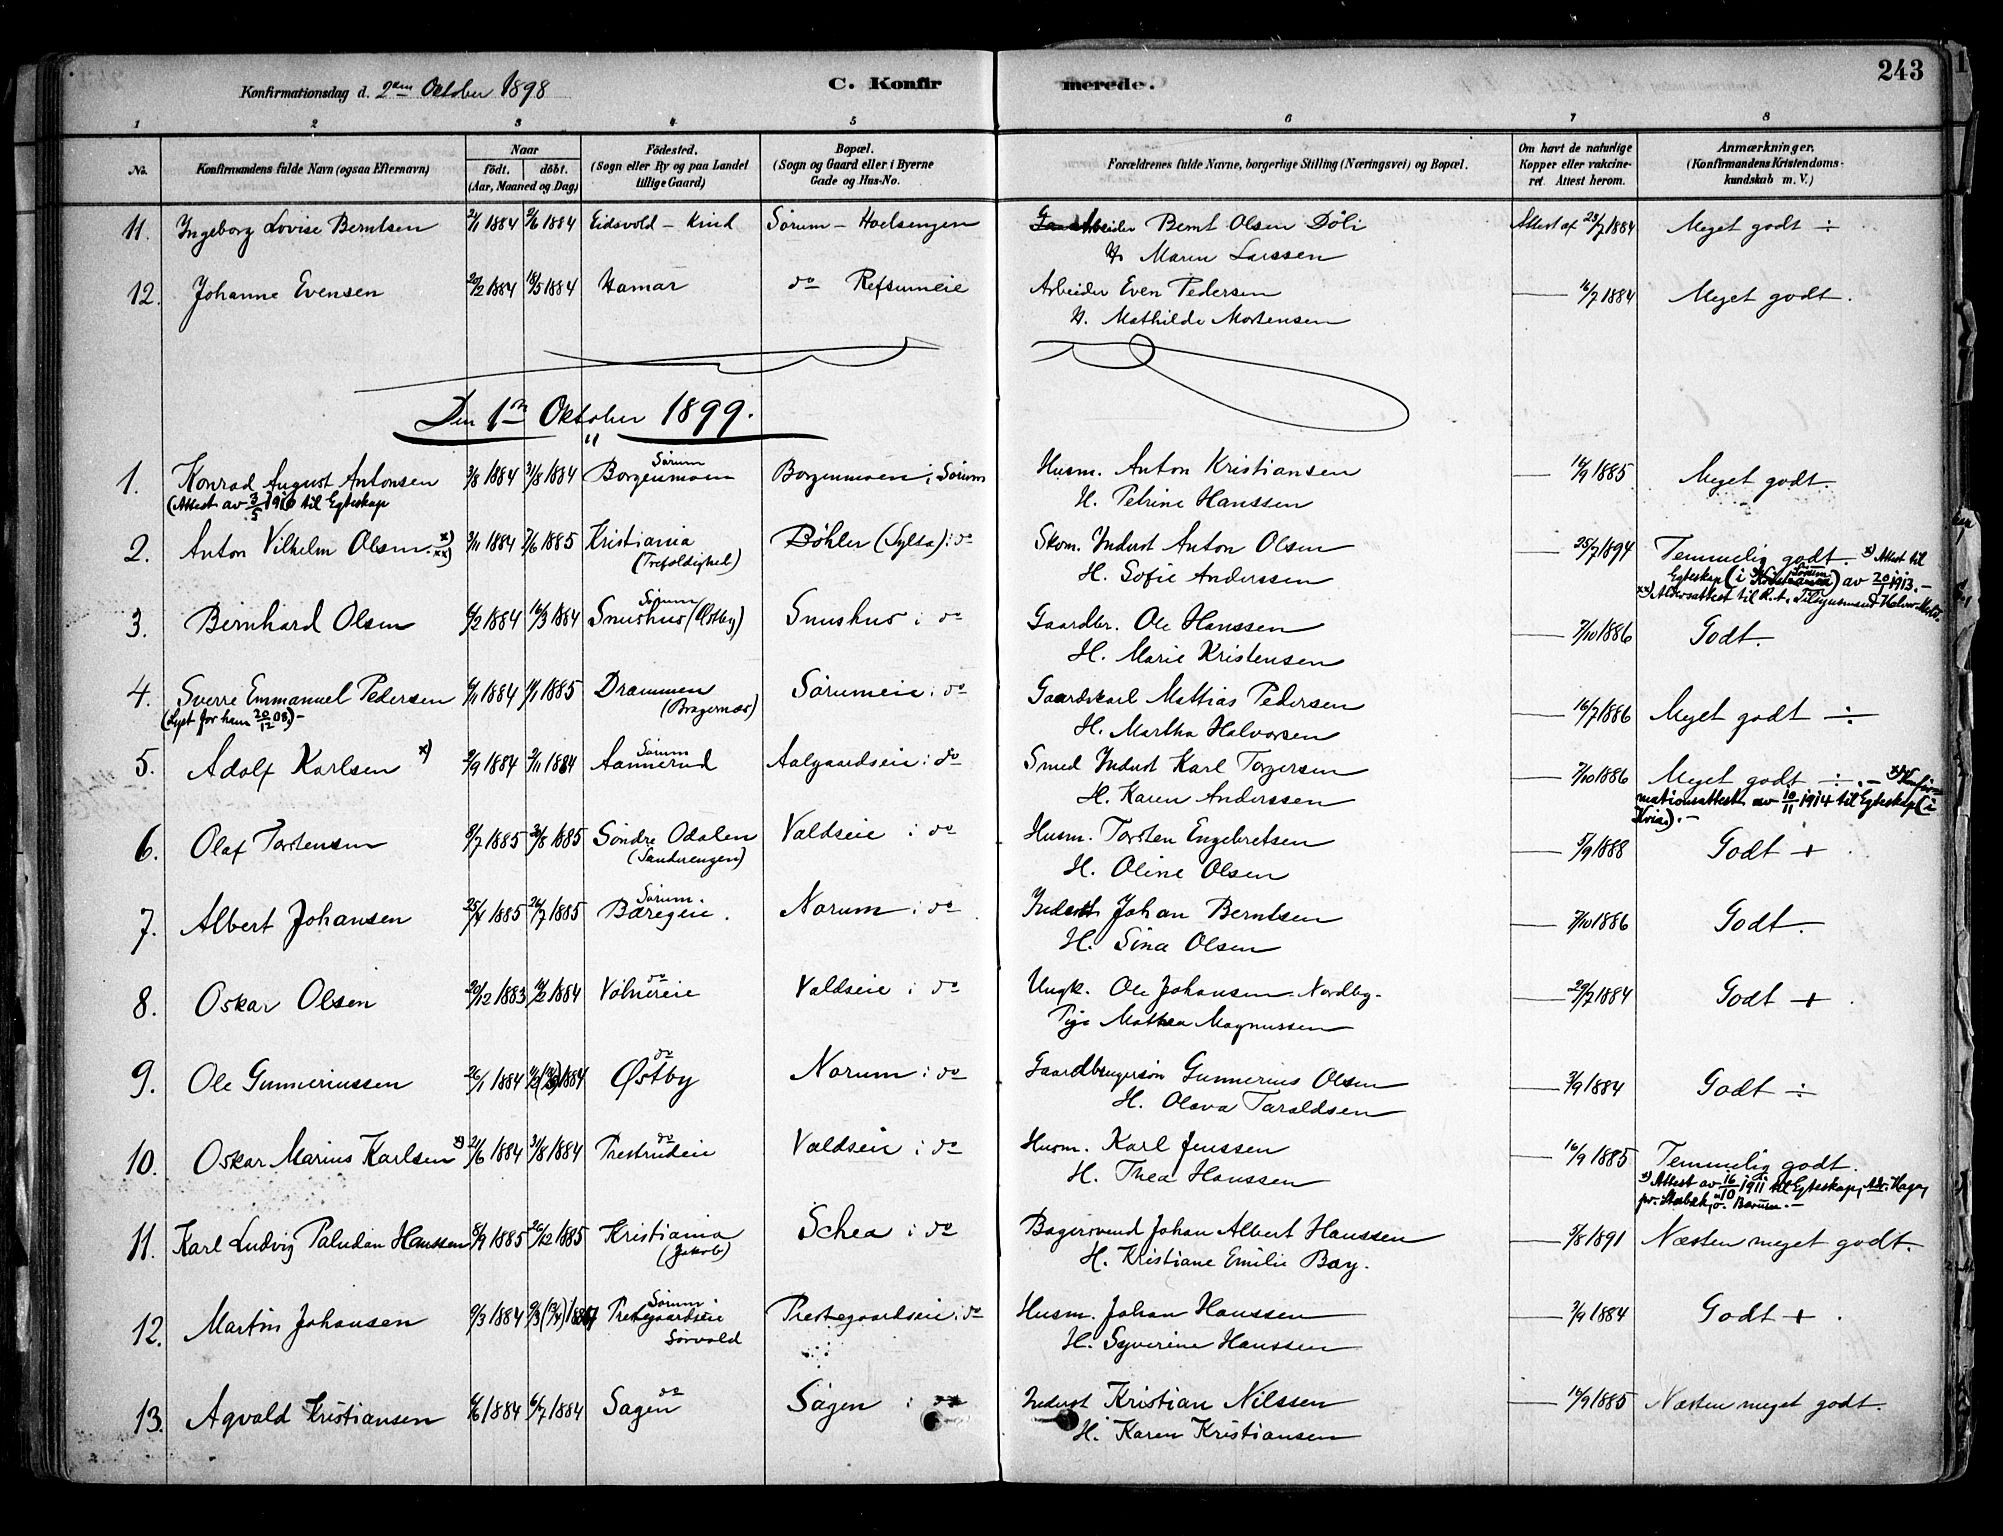 243
Konfirmationsdag d. 2den October 1898 C. Konfir merede.
1 2 3 4 5 6 7 8
No. Konfirmandens fulde Navn (ogsaa Efternavn) Naar født. døbt. (Aar, Maaned og Dag) Fødested. (Sogn eller By og paa Landet tillige Gaard) Bopæl. (Sogn og Gaard eller i Byerne Gade og Hus-No. Forældrenes fulde Navne, borgerlige Stilling (Næringsvei) og Bopæl. Om havt de naturlige Kopper eller vakcineret. Attest herom. Anmærkninger. (Konfirmandens Kristendomskundskab m. V.)
11. Ingeborg Lovise Berntsen 2/1 1884 2/6 1884 Eidsvold - Sørum - Arbeider Bernt Olsen Döli Attest af 23/7 1884 Meget godt ÷
H. Maren Larssen
12. Johanne Evensen 20/2 1884 18/5 1884 Hamar do Refsumeie Arbeider Even Pedersen — 16/7 1884 Meget godt.
H. Mathilde Mortensen
Den 1ste Oktober 1899.
1. Konrad August Antonsen 3/8 1884 31/8 1884 Sørum Borgenmoen Borgenmoen i Sørum Husm. Anton Kristiansen — 16/9 1885 Meget godt.
(Attest av 3/5 1916 til Egteskap H. Petrine Hanssen
2. Anton Vilhelm Olsen. x) xx) 3/11 1884 7/6 1885 Kristiania (Trefoldighed) Bøhler (Sylta) i do Skom. Inderst Anton Olsen — 25/7 1894 Temmelig godt. x) Attest til
H. Sofie Anderssen Egteskap (i Sørum) av 20/1 1913. -
xx) Aldersattest til R.A.
3. Bernhard Olsen 6/2 1884 16/3 1884 Sørum Smushus (Østby) Smushus i do Gaardbr. Ole Hanssen — 7/10 1886 Godt.
H. Marie Kristensen
4. Sverre Emmanuel Pedersen 6/11 1884 1/1 1885 Drammen (Bragernæs) Sørumeie i do Gaardskarl Mattias Pedersen — 16/7 1886 Meget godt ÷
(Lyst for ham 20/12 08.) - H. Martha Halvorsen
5. Adolf Karlsen x) 2/9 1884 2/11 1884 Sørum Aannerud Aalgaardseie i do Smed Inderst Karl Torgersen — 7/10 1886 Meget godt ÷. - x) Konfir-
H. Karen Anderssen mationsattest av 10/11 1914 til Egteskap (i
Kria.). -
6. Olaf Torstensen 8/7 1885 30/8 1885 Søndre Odalen (Sandvengen) Valdseie i do Husm. Torsten Engebretsen — 5/9 1888 Godt +
H. Oline Olsen
7. Albert Johansen 25/4 1885 26/7 1885 Sørum. Bæregeie. Norum i do Inderst Johan Berntsen — 7/10 1886 Godt.
H. Sina Olsen
8. Oskar Olsen 20/12 1883 10/2 1884 do Vølnereie Valdseie i do Ungk. Ole Johansen Nordby. — 29/7 1884 Godt +
Pige Mathea Magnussen
9. Ole Gunneriussen 26/1 1884 1884 do Østby Norum i do Gaardbrugersøn Gunnerius Olsen — 3/9 1884 Godt ÷
H. Olava Taraldsen
10. Oskar Marius Karlsen x) 21/6 1884 31/8 1884 do Prestrudeie Valdseie i do Husm. Karl Jenssen — 16/9 1885 Temmelig godt.
H. Thea Hanssen x) Attest av 16/10 1911 til Egteskap, Adr. Haga,
pr. Stabæk, Bærum. -
11. Karl Ludvig Paludan Hanssen 8/9 1885 26/12 1885 Kristiania (Jakob) Schea i do Bagersvend Johan Albert Hanssen — 5/8 1891 Næsten meget godt.
H. Kristiane Emilie Bay.
12. Martin Johansen 9/3 1884 Sørum Prestegaardseie Sørvald Prestegaardseie i do Husm. Johan Hanssen — 3/9 1884 Godt +
H. Syverine Hanssen
13. Agvald Kristiansen 6/6 1884 6/7 1884 do Sagen Sagen i do Inderst Kristian Nilssen — 16/9 1885 Næsten meget godt.
H. Karen Kristiansen